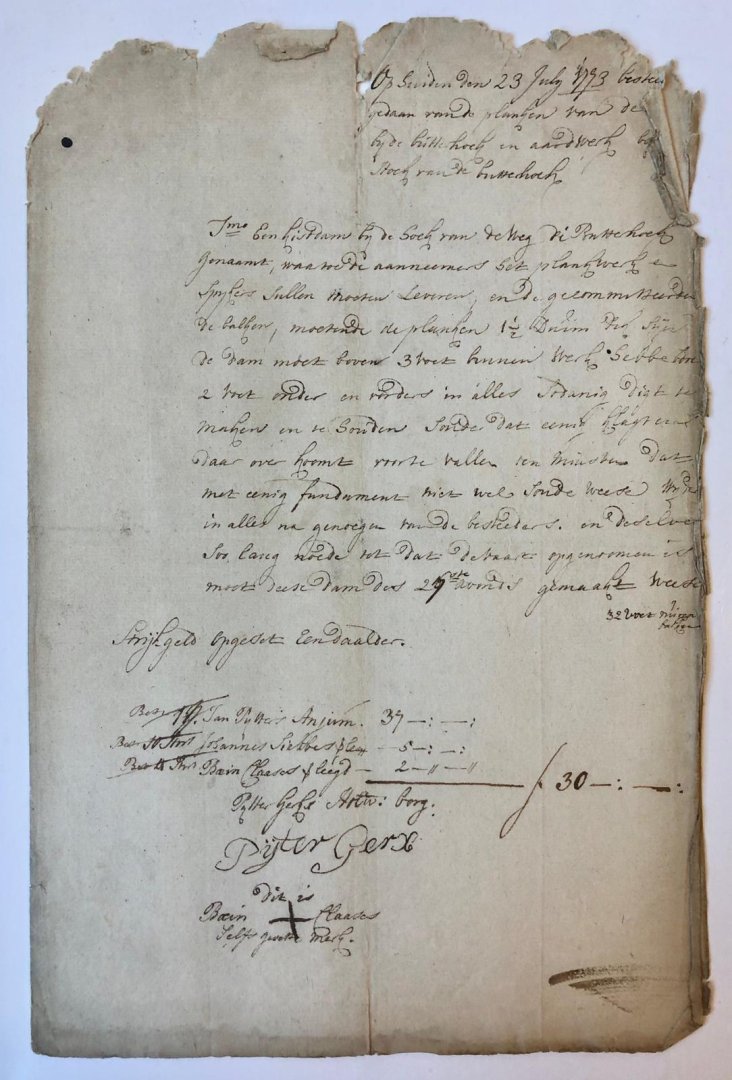 Op Huiden den 23 July 1773 bestee
gedaan van de planken van de
by de butterhoek en aardwerk by
Hoek van de butterhoek
1mo Een kistdam by de hoek van de weg di Butterhoek
genaamt, waar toe de aanneemers het plankwerk e
Spykers sullen moeten Leveren, en de gecommitteerden
de balken, moetende de planken 1½ Duim dik Syn
de dam moet boven 3 voet binnen werk hebbe en
2 voet onder en vorders in alles Sodanig digt te
maken en te houden Sonder dat eenig klagten
daar over koomt voor te vallen ten minsten dat
met eenig fundament niet wel Soude weese
in alles na genoegen van de besteeders. en deselve
Soo lang tot dat de vaart opgenoomen is
moet deese dam des 29ste avonds gemaakt weese
32 voet
Strijkgeld opgeset Een daalder.
Jan Pytters Anjum. 37 —:—:
Johannes Siebbes — 5 —:—:
Bæin Claases — 2 —„—„
ƒ 30 —:—:
Pytter Gerks Holw: borg.
Pyter Gerx
dit is
Bæin + Claases
Selfs gesette merk.